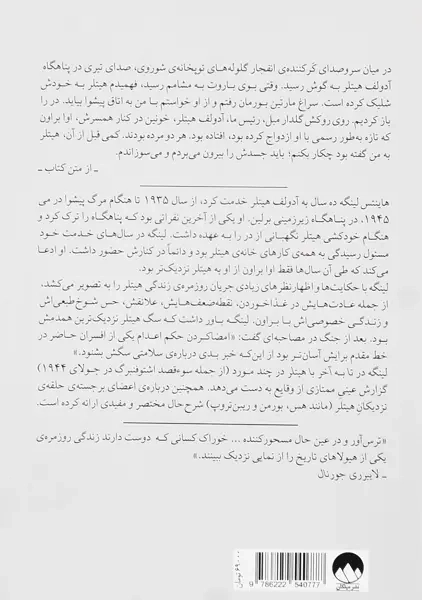 در میان سروصدای کَرکننده‌ی انفجار گلوله‌های توپخانه‌ی شوروی، صدای تیری در پناهگاه
آدولف هیتلر به گوش رسید. وقتی بوی باروت به مشامم رسید، فهمیدم هیتلر به خودش
شلیک کرده است. سراغ مارتین بورمان رفتم و از او خواستم با من به اتاق پیشوا بیاید. در را
باز کردیم. روی روکش گلدار مبل، رئیس ما، آدولف هیتلر، خونین در کنار همسرش، اوا براون
که تازه به‌طور رسمی با او ازدواج کرده بود، افتاده بود. هر دو مرده بودند. کمی قبل از آن، هیتلر
به من گفته بود چکار بکنم؛ باید جسدش را بیرون می‌بردم و می‌سوزاندم.
ـ از متن کتاب ـ
هاینتس لینگه ده سال به آدولف هیتلر خدمت کرد، از سال ۱۹۳۵ تا هنگام مرگ پیشوا در می
۱۹۴۵، در پناهگاه زیرزمینی برلین. او یکی از آخرین نفراتی بود که پناهگاه را ترک کرد و
هنگام خودکشی هیتلر نگهبانی از در را به عهده داشت. لینگه در سال‌های خدمت خود
مسئول رسیدگی به همه‌ی کارهای خانه‌ی هیتلر بود و دائماً در کنارش حضور داشت. او ادعا
می‌کند که طی آن سال‌ها فقط اوا براون از او به هیتلر نزدیک‌تر بود.
لینگه با حکایت‌ها و اظهارنظرهای زیادی جریان روزمره‌ی زندگی هیتلر را به تصویر می‌کشد،
از جمله عادت‌هایش در غذاخوردن، نقطه‌ضعف‌هایش، علائقش، حس شوخ‌طبعی‌اش
و زندگی خصوصی‌اش با براون. لینگه باور داشت که سگ هیتلر نزدیک‌ترین همدمش
بود. بعد از جنگ در مصاحبه‌ای گفت: «امضاکردن حکم اعدام یکی از افسران حاضر در
خط مقدم برایش آسان‌تر بود از این‌که خبر بدی درباره‌ی سلامتی سگش بشنود.»
لینگه در تا به آخر با هیتلر در چند مورد (از جمله سوءقصد اشتوفنبرگ در جولای ۱۹۴۴)
گزارش عینی ممتازی از وقایع به دست می‌دهد. همچنین درباره‌ی اعضای برجسته‌ی حلقه‌ی
نزدیکان هیتلر (مانند هس، بورمن و ریبن‌تروپ) شرح‌حال مختصر و مفیدی ارائه کرده است.
«ترس‌آور و در عین حال مسحورکننده ... خوراک کسانی که دوست دارند زندگی روزمره‌ی
یکی از هیولاهای تاریخ را از نمایی نزدیک ببینند.»
ـ لایبرری جورنال
۶۹۰۰۰ تومان
9 786222 540777